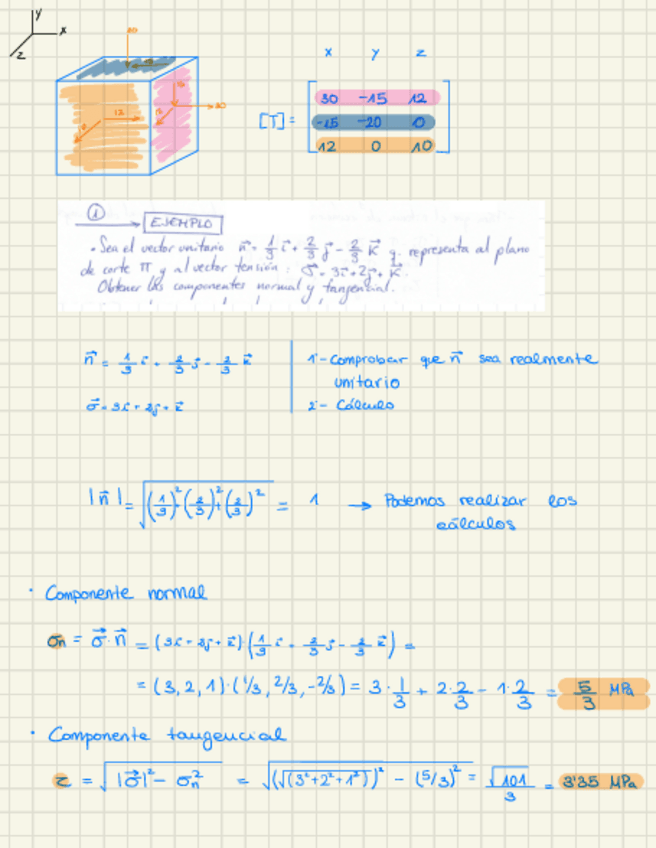 y
x
z
20
12
30
x y z
[T] =
30 -15 12
-15 -20 0
12 0 10
① → EJEMPLO
• Sea el vector unitario n⃗ = 1/3 i⃗ + 2/3 j⃗ - 2/3 k⃗ q. representa al plano
de corte π y al vector tensión, σ⃗ = 3i⃗ + 2j⃗ + k⃗.
Obtener las componentes normal y tangencial.
n⃗ = 1/3 i⃗ + 2/3 j⃗ - 2/3 k⃗
σ⃗ = 3i⃗ + 2j⃗ + k⃗
1- Comprobar que n⃗ sea realmente
unitario
2- Cálculo
|n⃗| = √((1/3)² + (2/3)² + (2/3)²) = 1 → Podemos realizar los
cálculos
· Componente normal
σn = σ⃗ · n⃗ = (3i⃗ + 2j⃗ + k⃗)(1/3 i⃗ + 2/3 j⃗ - 2/3 k⃗) =
= (3, 2, 1)·(1/3, 2/3, -2/3) = 3 · 1/3 + 2 · 2/3 - 1 · 2/3 = 5/3 MPa
· Componente tangencial
τ = √(|σ⃗|² - σn²) = √((√(3²+2²+1²))² - (5/3)²) = √101/3 = 3'35 MPa